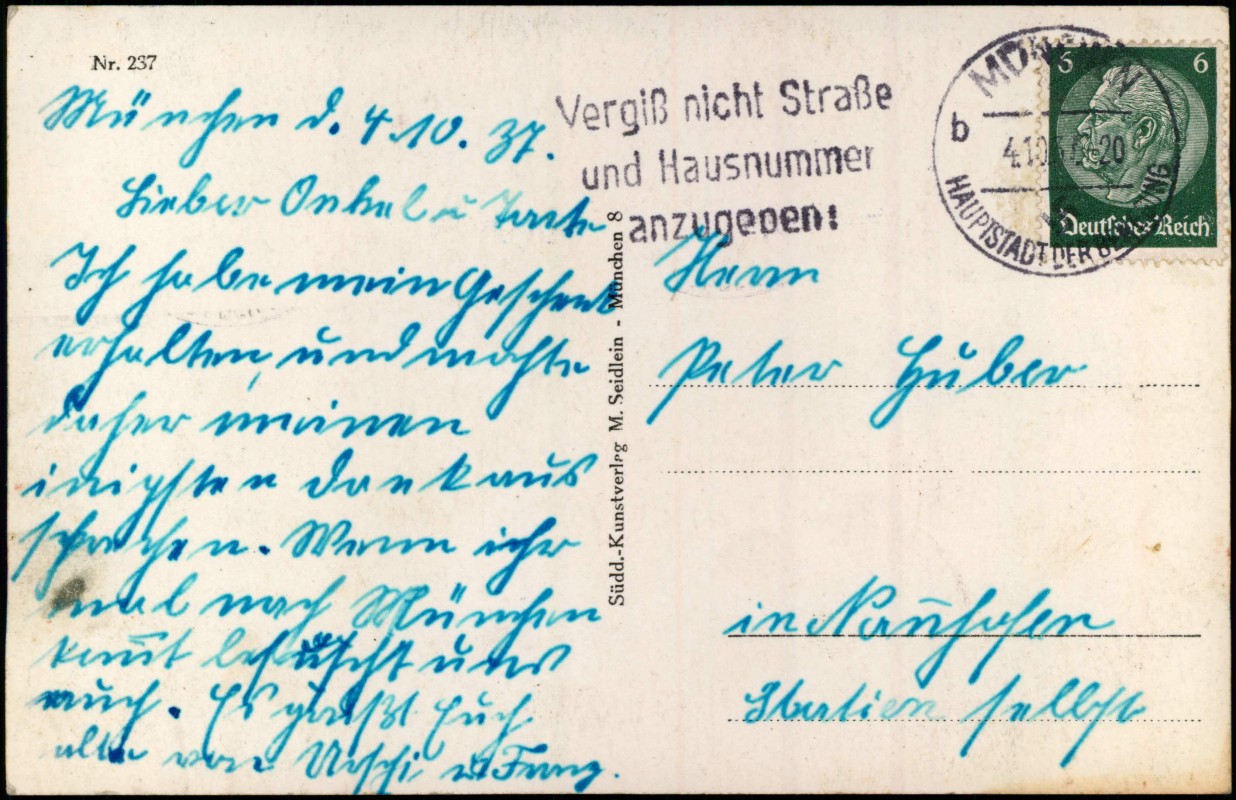 Nr. 237
München d. 4.10.37.
Lieber Onkel u Tante
Ich habe mein Geschenk
erhalten, und möchte
daher meinen
inigsten Dank aus
sprechen. Wenn ihr
mal nach München
kommt besucht uns
auch. Es grüßt Euch
alle von Uschi u Franz.
Südd.-Kunstverlag M. Seidlein - München 8
Vergiß nicht Straße
und Hausnummer
anzugeben!
MÜNCHEN
b
4.10.37.-20
HAUPTSTADT DER BEWEGUNG
6 6
Deutsches Reich
Herrn
Peter Huber
in
Station selbst